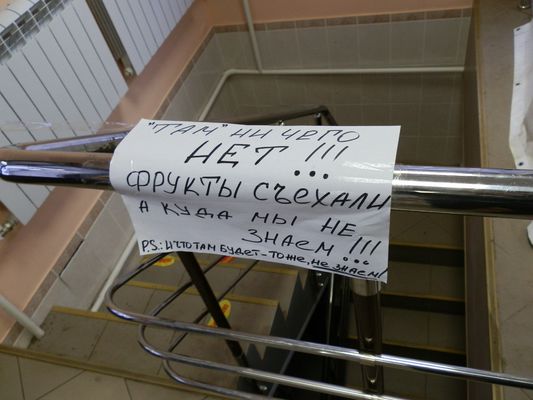 "ТАМ" НИ ЧЕГО
НЕТ...!!!
ФРУКТЫ СЪЕХАЛИ
А КУДА МЫ НЕ
ЗНАЕМ...!!!
P.S.: И ЧТО ТАМ БУДЕТ-ТОЖЕ, НЕ ЗНАЕМ!